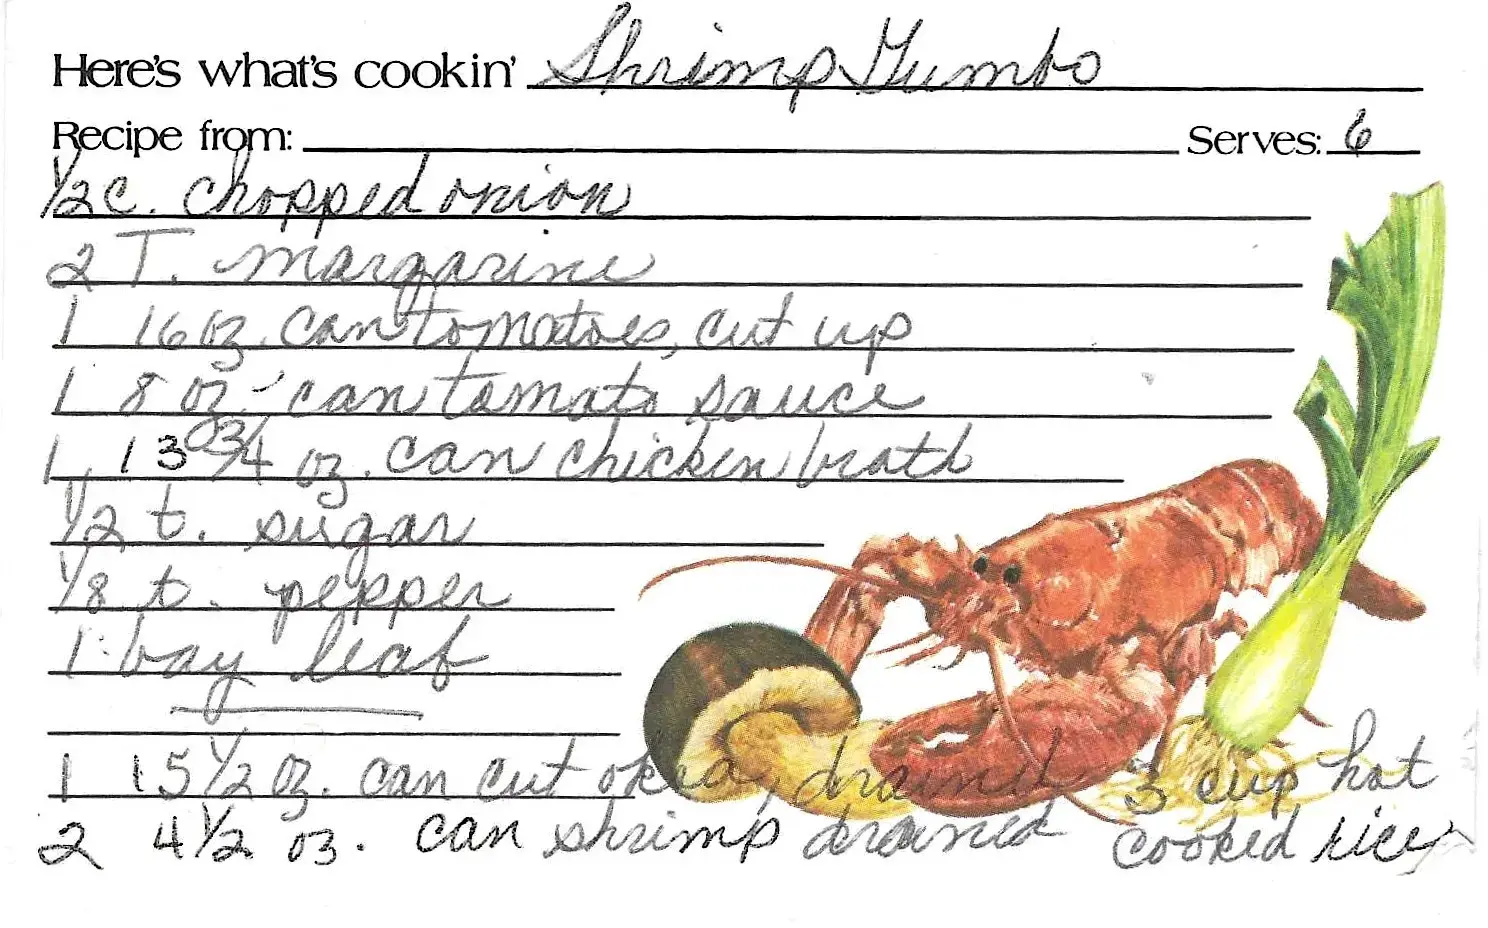 Here's what's cookin' Shrimp Gumbo
Recipe from: Serves: 6
1/2 c. chopped onion
2 T. margarine
1 16 oz. can tomatoes, cut up
1 8 oz. can tomato sauce
1 13 3/4 oz. can chicken broth
1/2 t. sugar
1/8 t. pepper
1 bay leaf
1 15 1/2 oz. can cut okra, drained 3 cup hot
2 4 1/2 oz. can shrimp drained cooked rice